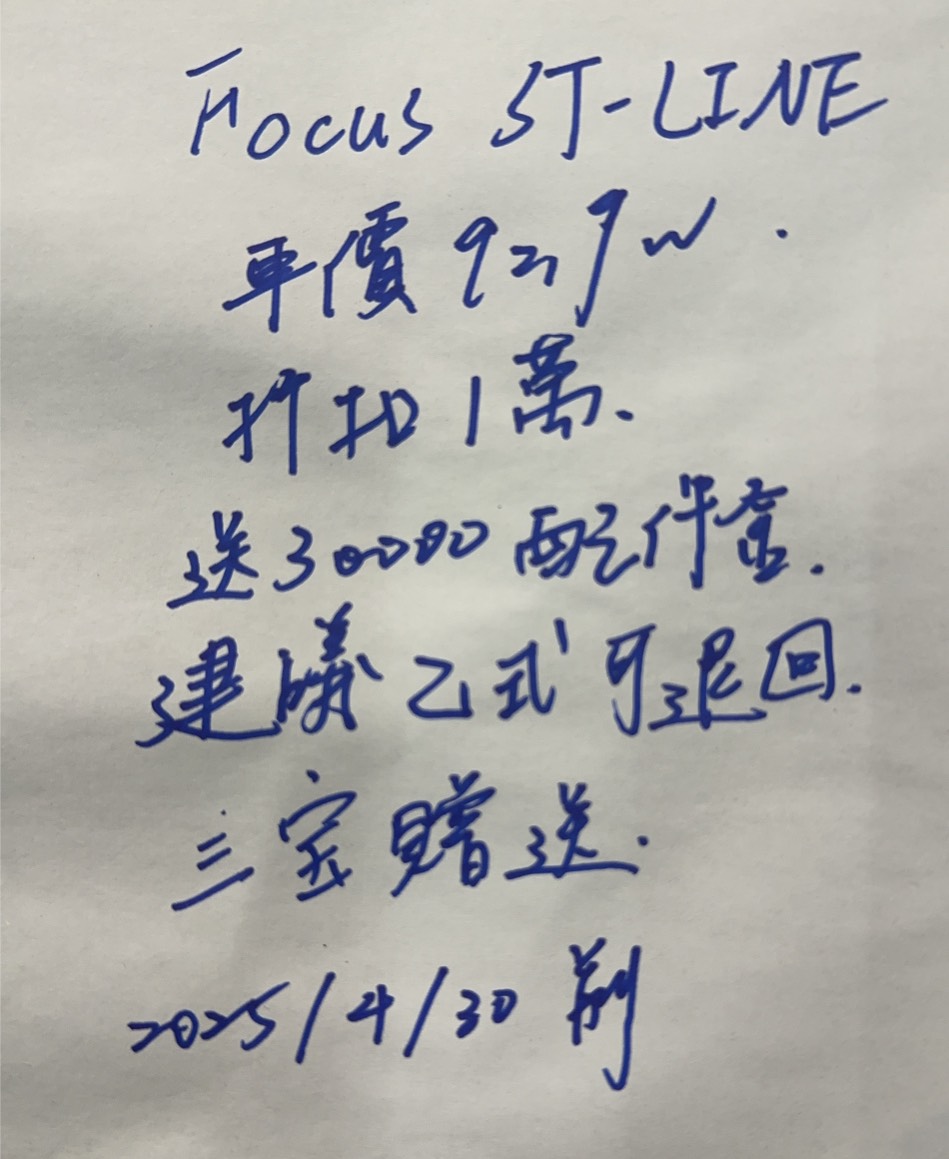 Focus ST-LINE
車價 92,9w.
折扣1萬.
送30000配件金.
建議乙式可退回.
三宝贈送.
2025/4/30 前